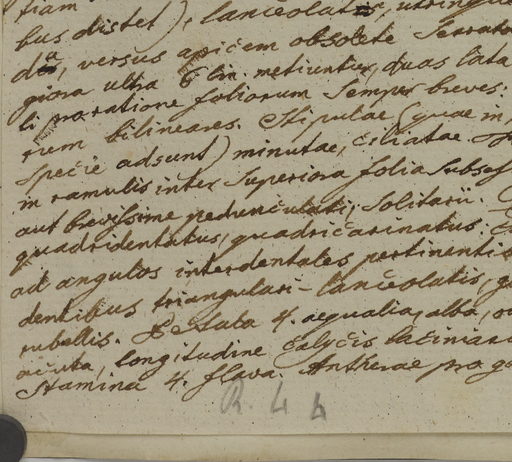 tiam
bus distet), lanceolata, utrinqu
da, versus apicem obsolete Serrata
giora ultra 6 lin. metiuntur, duas lata
li pro ratione foliorum Semper breves:
rum bilineares. Stipulae (quae in
Specie adsunt) minutae, ciliatae.
in ramulis inter Superiora folia Subses
aut brevissime pedunculati, Solitarii.
quadridentatus, quadricarinatus:
ad angulos interdentales pertinenti
dentibus triangulari-lanceolatis, qu
rubellis. Petala 4. aequalia, alba, o
acuta, longitudine calycis laciniar
Stamina 4. flava. Antherae pro g
R. 44